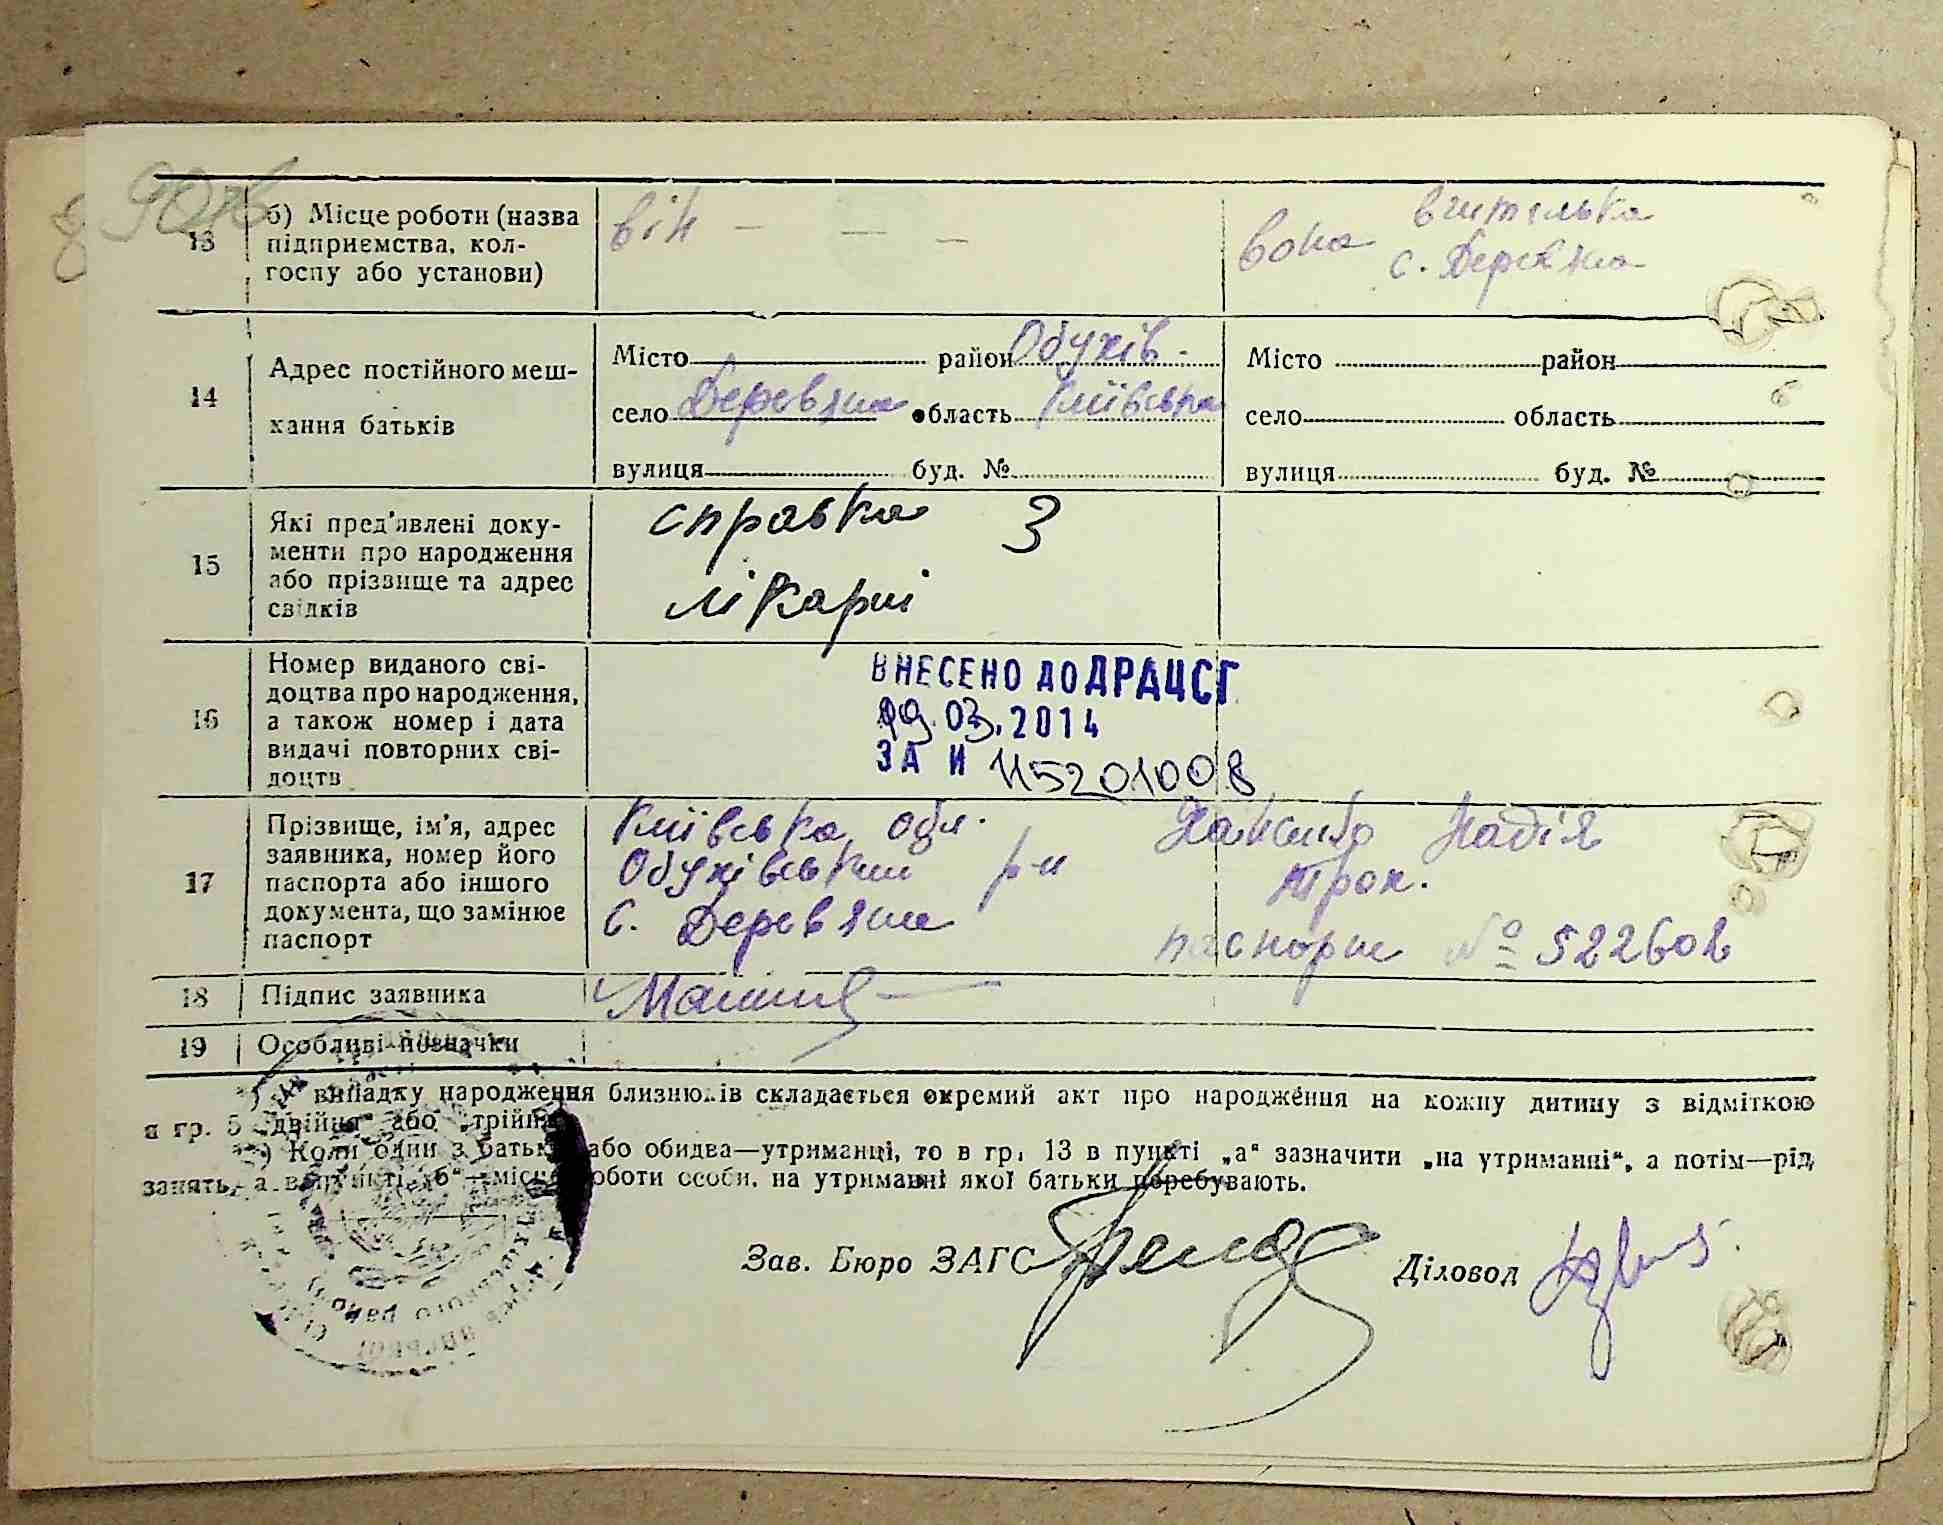 13
б) Місце роботи (назва
підприємства, кол-
госпу або установи)
він - — -
вона вчителька
с. Деревяна
14
Адрес постійного меш-
кання батьків
Місто район Обухів-
село Деревяна область Київська
вулиця буд. №
Місто район
село область
вулиця буд. №
15
Які пред'явлені доку-
менти про народження
або прізвище та адрес
свідків
справка з
лікарні
16
Номер виданого сві-
доцтва про народження,
а також номер і дата
видачі повторних сві-
доцтв
ВНЕСЕНО ДО ДРАЦСГ
19.03.2014
ЗА И 115201008
17
Прізвище, ім'я, адрес
заявника, номер його
паспорта або іншого
документа, що замінює
паспорт
Київська обл.
Обухівський р-н
с. Дерев'яна
Надія
Трох.
паспорт № 522602
18
Підпис заявника
19
Особливі позначки
випадку народження близнюків складається окремий акт про народження на кожну дитину з відміткою
в гр. 5 „двійня" або „трійня"
) Коли один з батьків або обидва—утриманці, то в гр. 13 в пункті „а" зазначити „на утриманні", а потім—рід
занять, а в пункті „б"—місце роботи особи, на утриманні якої батьки перебувають.
Зав. Бюро ЗАГС
Діловод